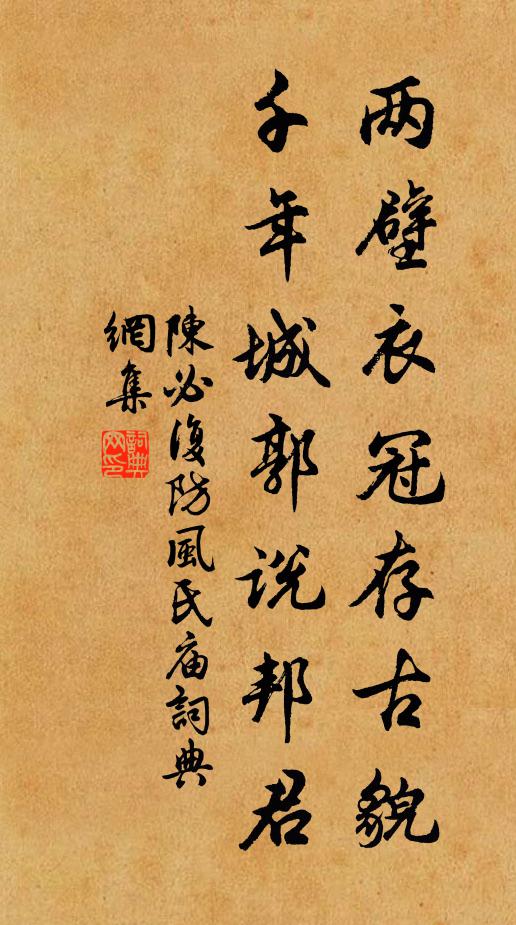 两壁衣冠存古貌
千年城郭说邦君
陳必復防風氏庙詞典
網集
詞典网印